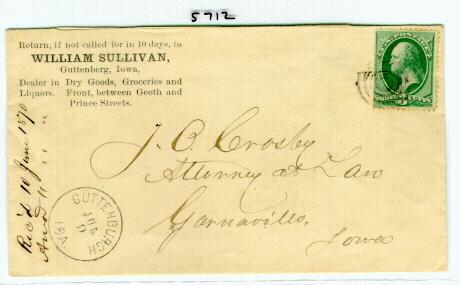 5712
Return, if not called for in 10 days, to
WILLIAM SULLIVAN,
Guttenberg, Iowa,
Dealer in Dry Goods, Groceries and
Liquors. Front, between Geoth and
Prince Streets.
J. O. Crosby
Attorney at Law
Garnavillo,
Iowa
Rec'd 10 June 1870
Ansd 11 " "
GUTTENBURGH
JUN
9
IOA.